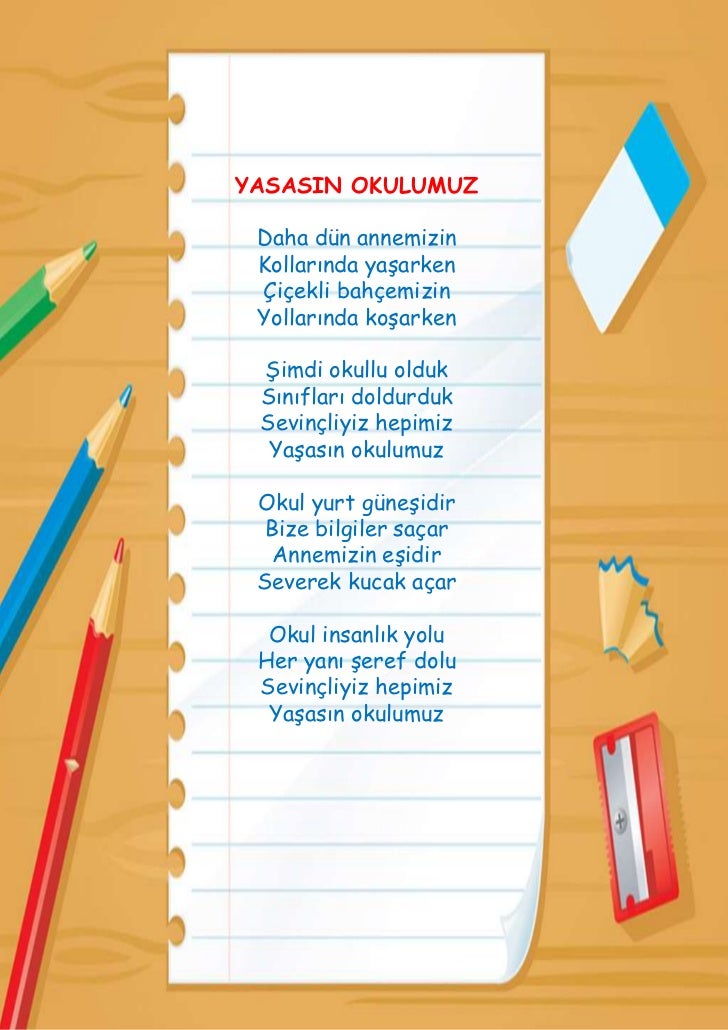 YASASIN OKULUMUZ
Daha dün annemizin
Kollarında yaşarken
Çiçekli bahçemizin
Yollarında koşarken
Şimdi okullu olduk
Sınıfları doldurduk
Sevinçliyiz hepimiz
Yaşasın okulumuz
Okul yurt güneşidir
Bize bilgiler saçar
Annemizin eşidir
Severek kucak açar
Okul insanlık yolu
Her yanı şeref dolu
Sevinçliyiz hepimiz
Yaşasın okulumuz